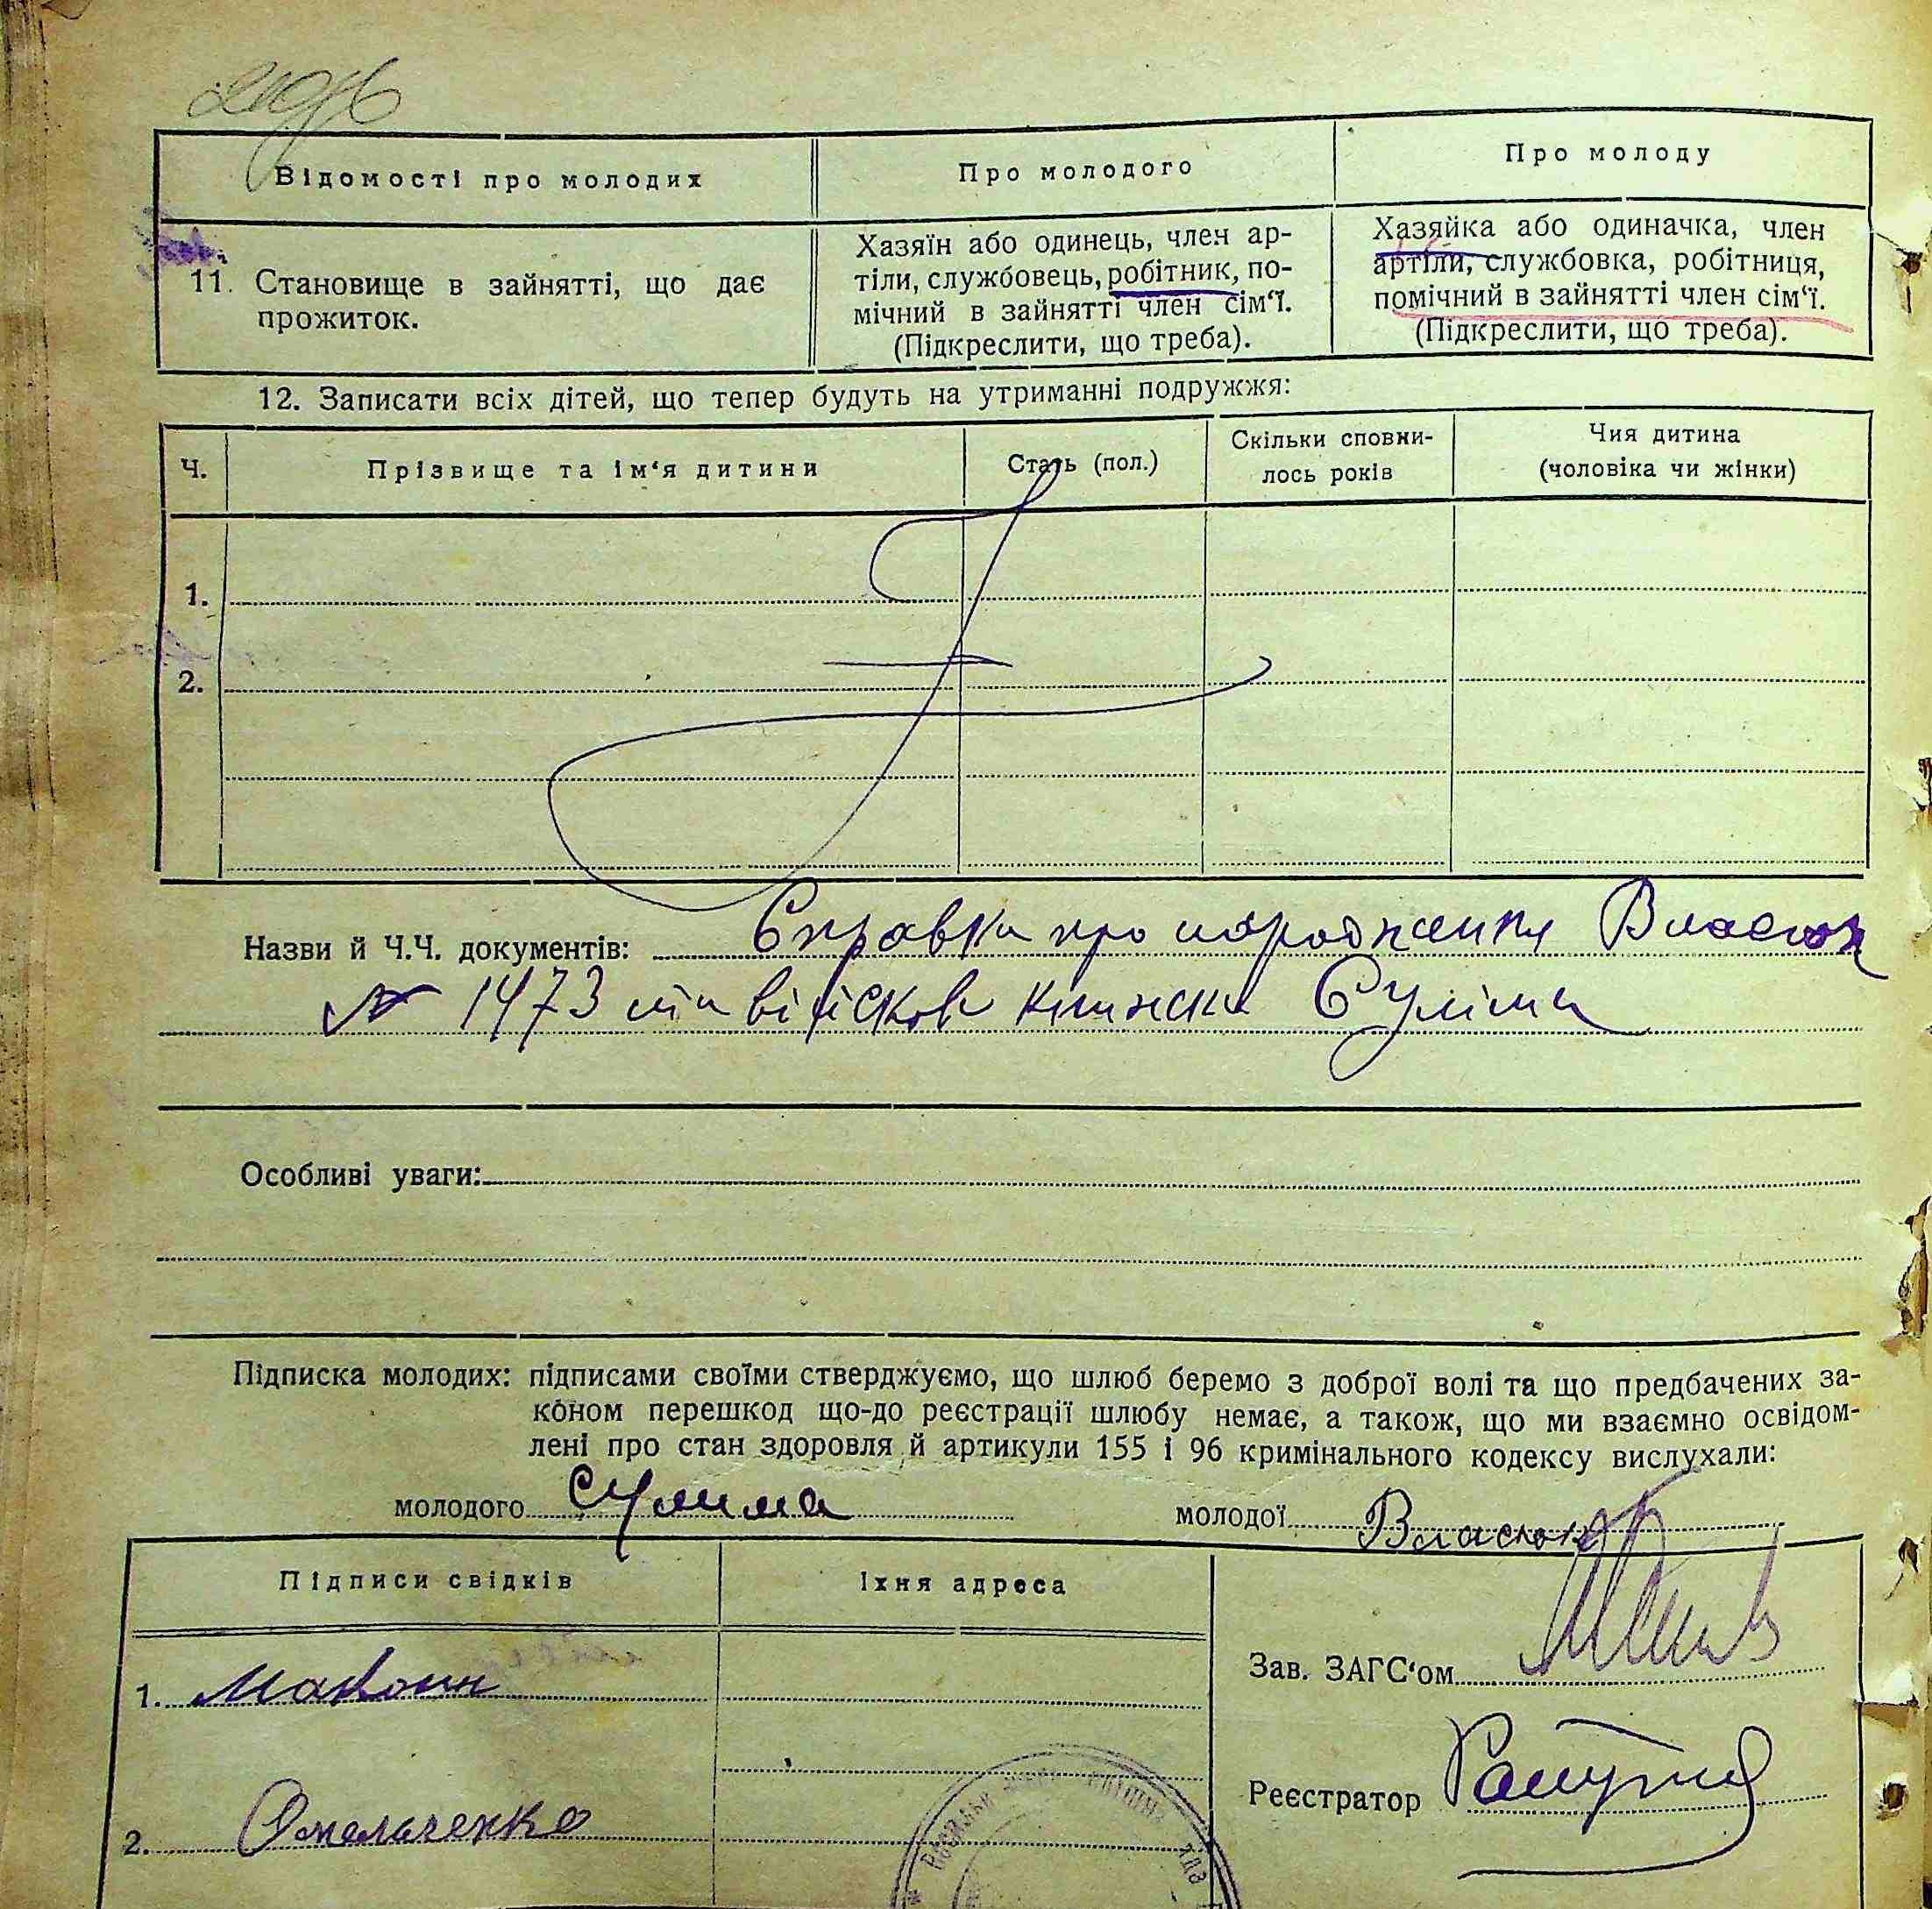 Відомості про молодих
Про молодого
Про молоду
11. Становище в зайнятті, що дає
прожиток.
Хазяїн або одинець, член ар-
тіли, службовець, робітник, по-
мічний в зайнятті член сім‘ї.
(Підкреслити, що треба).
Хазяйка або одиначка, член
артіли, службовка, робітниця,
помічний в зайнятті член сім‘ї.
(Підкреслити, що треба).
12. Записати всіх дітей, що тепер будуть на утриманні подружжя:
Ч.
Прізвище та ім‘я дитини
Стать (пол.)
Скільки сповни-
лось років
Чия дитина
(чоловіка чи жінки)
1.
2.
Назви й Ч.Ч. документів: Справка про народження Власюк
№ 1473 та війскова книжка Суліма
Особливі уваги:
Підписка молодих: підписами своїми стверджуємо, що шлюб беремо з доброї волі та що предбачених за-
коном перешкод що-до реєстрації шлюбу немає, а також, що ми взаємно освідом-
лені про стан здоровля й артикули 155 і 96 кримінального кодексу вислухали:
молодого Сулима
молодої Власюк
Підписи свідків
Їхня адреса
1.
2. Омельченко
Зав. ЗАГС‘ом
Реєстратор